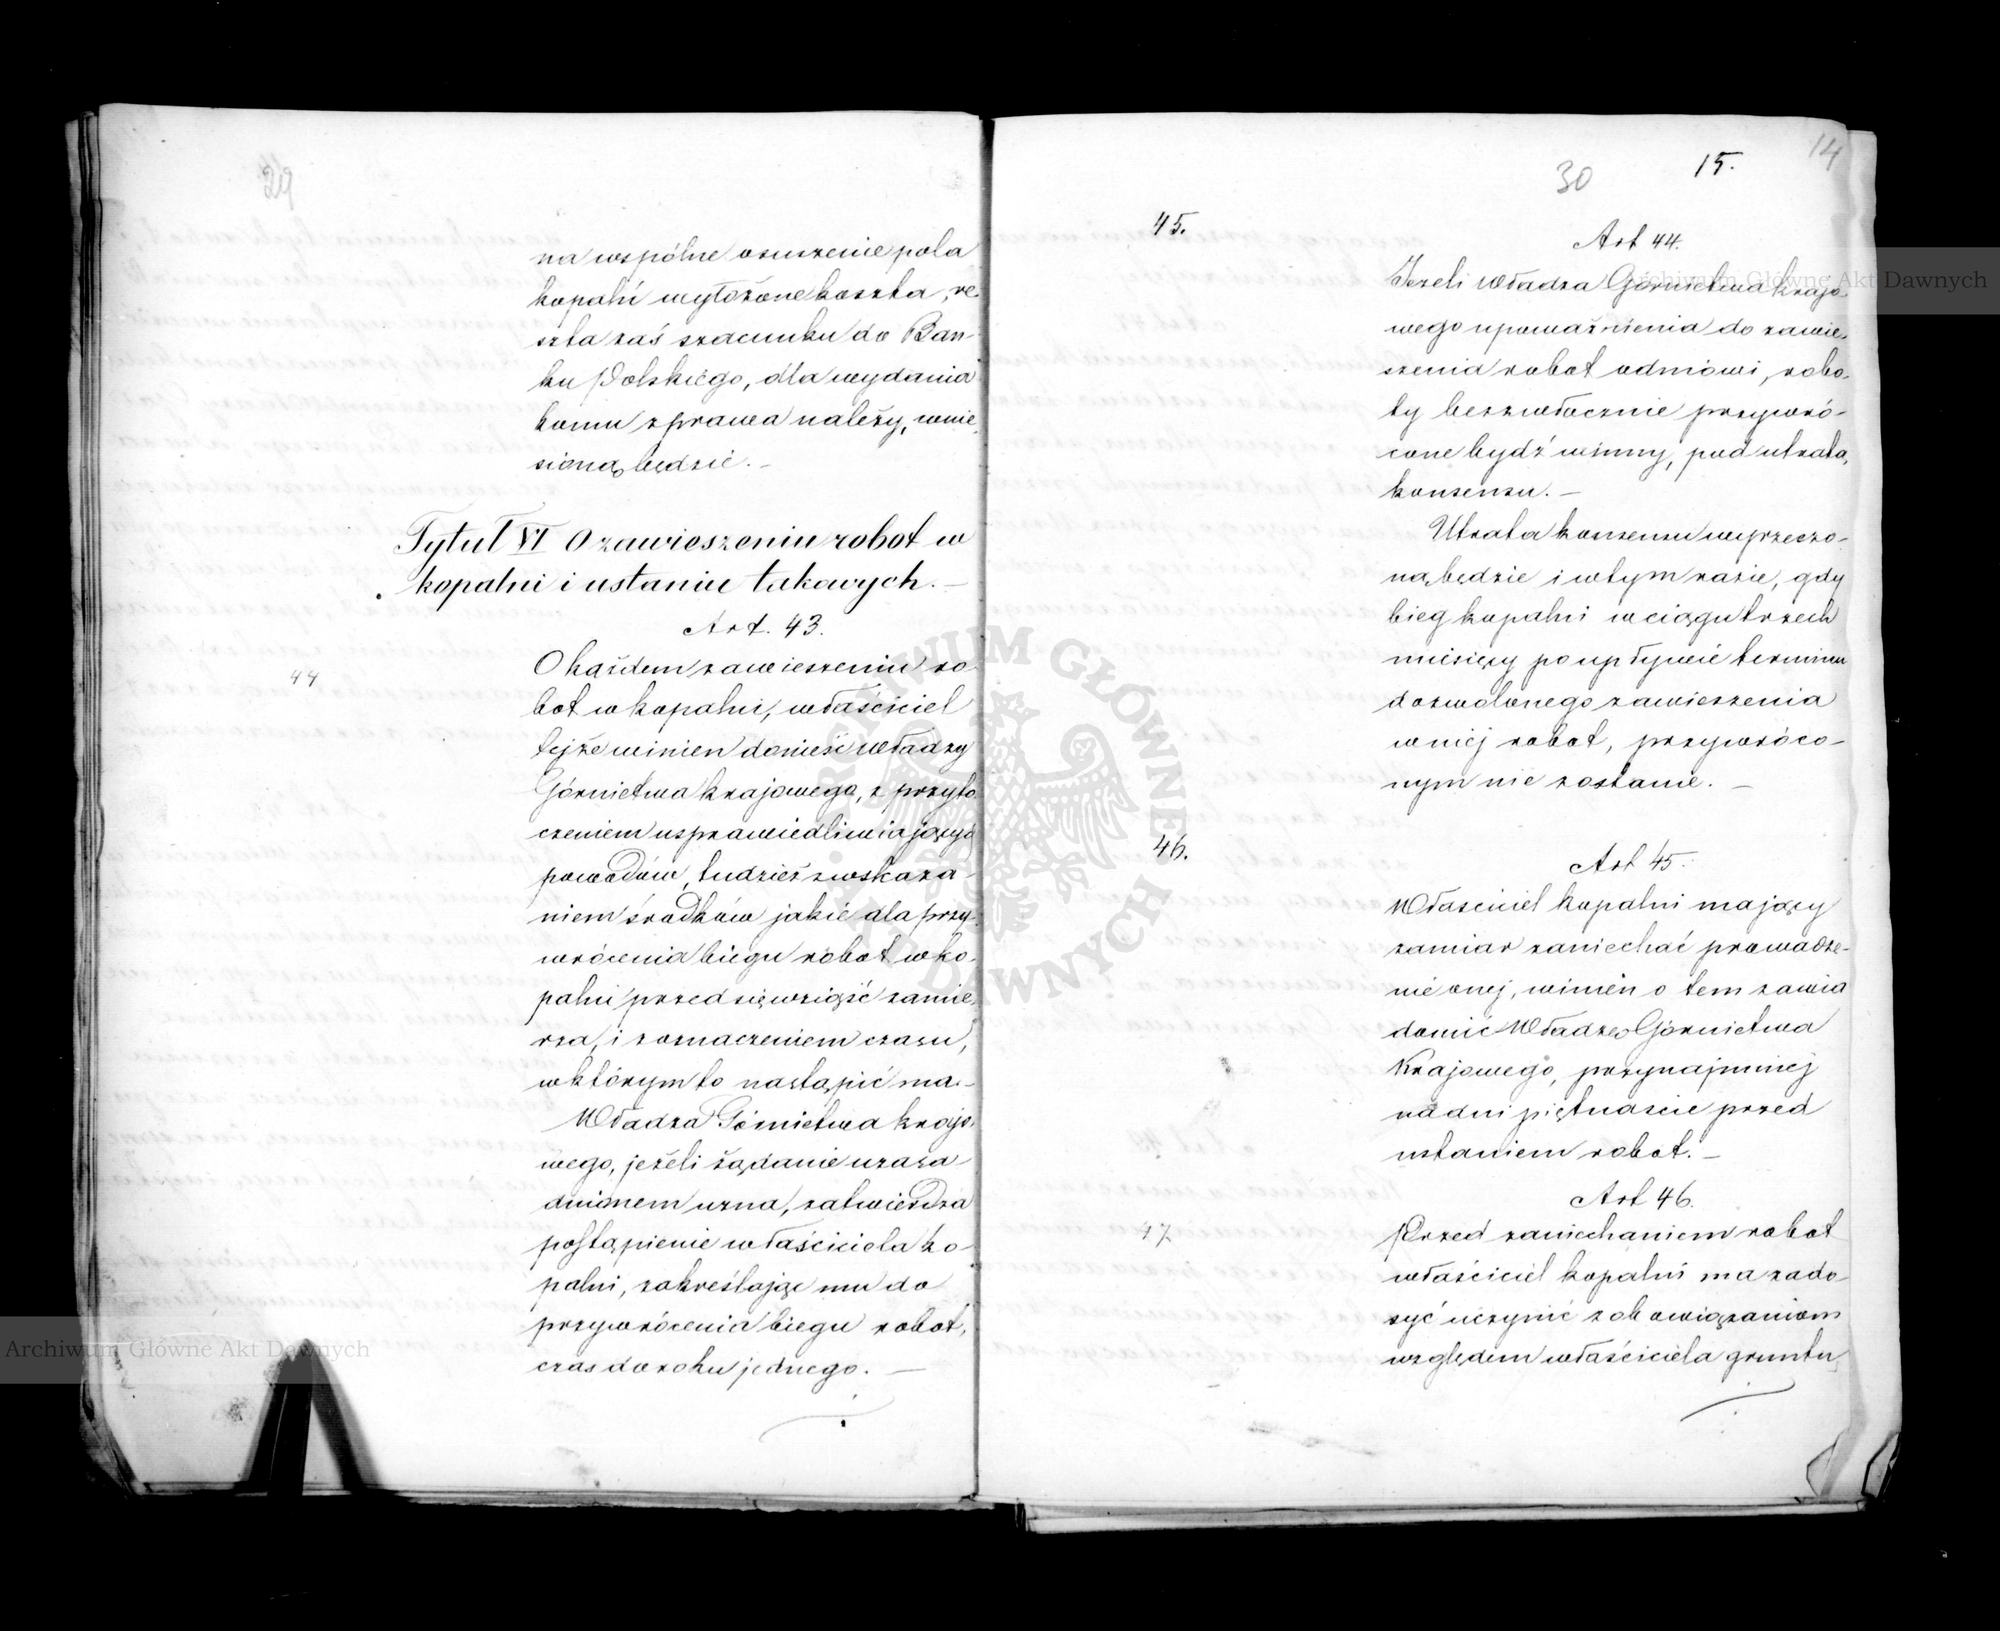 29
na wspólne osuszenie pola
kopalń wyłożone koszta, re-
szta zaś szacunku do Ban-
ku Polskiego, dla wydania
komu z prawa należy, wnie-
sioną będzie. –
Tytuł VI O zawieszeniu robot w
kopalni i ustaniu takowych. –
Art. 43.
44
O każdem zawieszeniu ro-
bot w kopalni, właściciel
tejże winien donieść władzy
Górnictwa krajowego, z przyto-
czeniem usprawiedliwiających
powodów, tudzież z wskaza-
niem środków jakie dla przy-
wrócenia biegu robot w ko-
palni przedsięwziąść zamie-
rza, i z oznaczeniem czasu,
w którym to nastąpić ma. –
Władza Górnictwa krajo-
wego, jeżeli żądanie uzasa-
dnionem uzna, zatwierdza
postąpienie właściciela ko-
palni, zakreślając mu do
przywrócenia biegu robot,
czas do roku jednego. –
30
15.
14
45.
Art 44.
Jeżeli Władza Górnictwa krajo-
wego upoważnienia do zawie-
szenia robot odmówi, robo-
ty bezzwłocznie przywró-
cone bydź winny, pod utratą
konsensu. –
Utrata konsensu wyrzeczo-
ną będzie i w tym razie, gdy
bieg kopalni w ciągu trzech
miesięcy po upływie terminu
dozwolonego zawieszenia
w niej robot, przywróco-
nym nie zostanie. –
46.
Art 45.
Właściciel kopalni mający
zamiar zaniechać prowadze-
nie onej, winien o tem zawia
domić Władzę Górnictwa
Krajowego, przynajmniej
na dni piętnaście przed
ustaniem robot. –
Art 46.
47
Przed zaniechaniem robot
właściciel kopalni ma zado-
syć uczynić zobowiązaniom
względem właściciela gruntu
Archiwum Główne Akt Dawnych
Archiwum Główne Akt Dawnych
ARCHIWUM GŁÓWNE AKT DAWNYCH